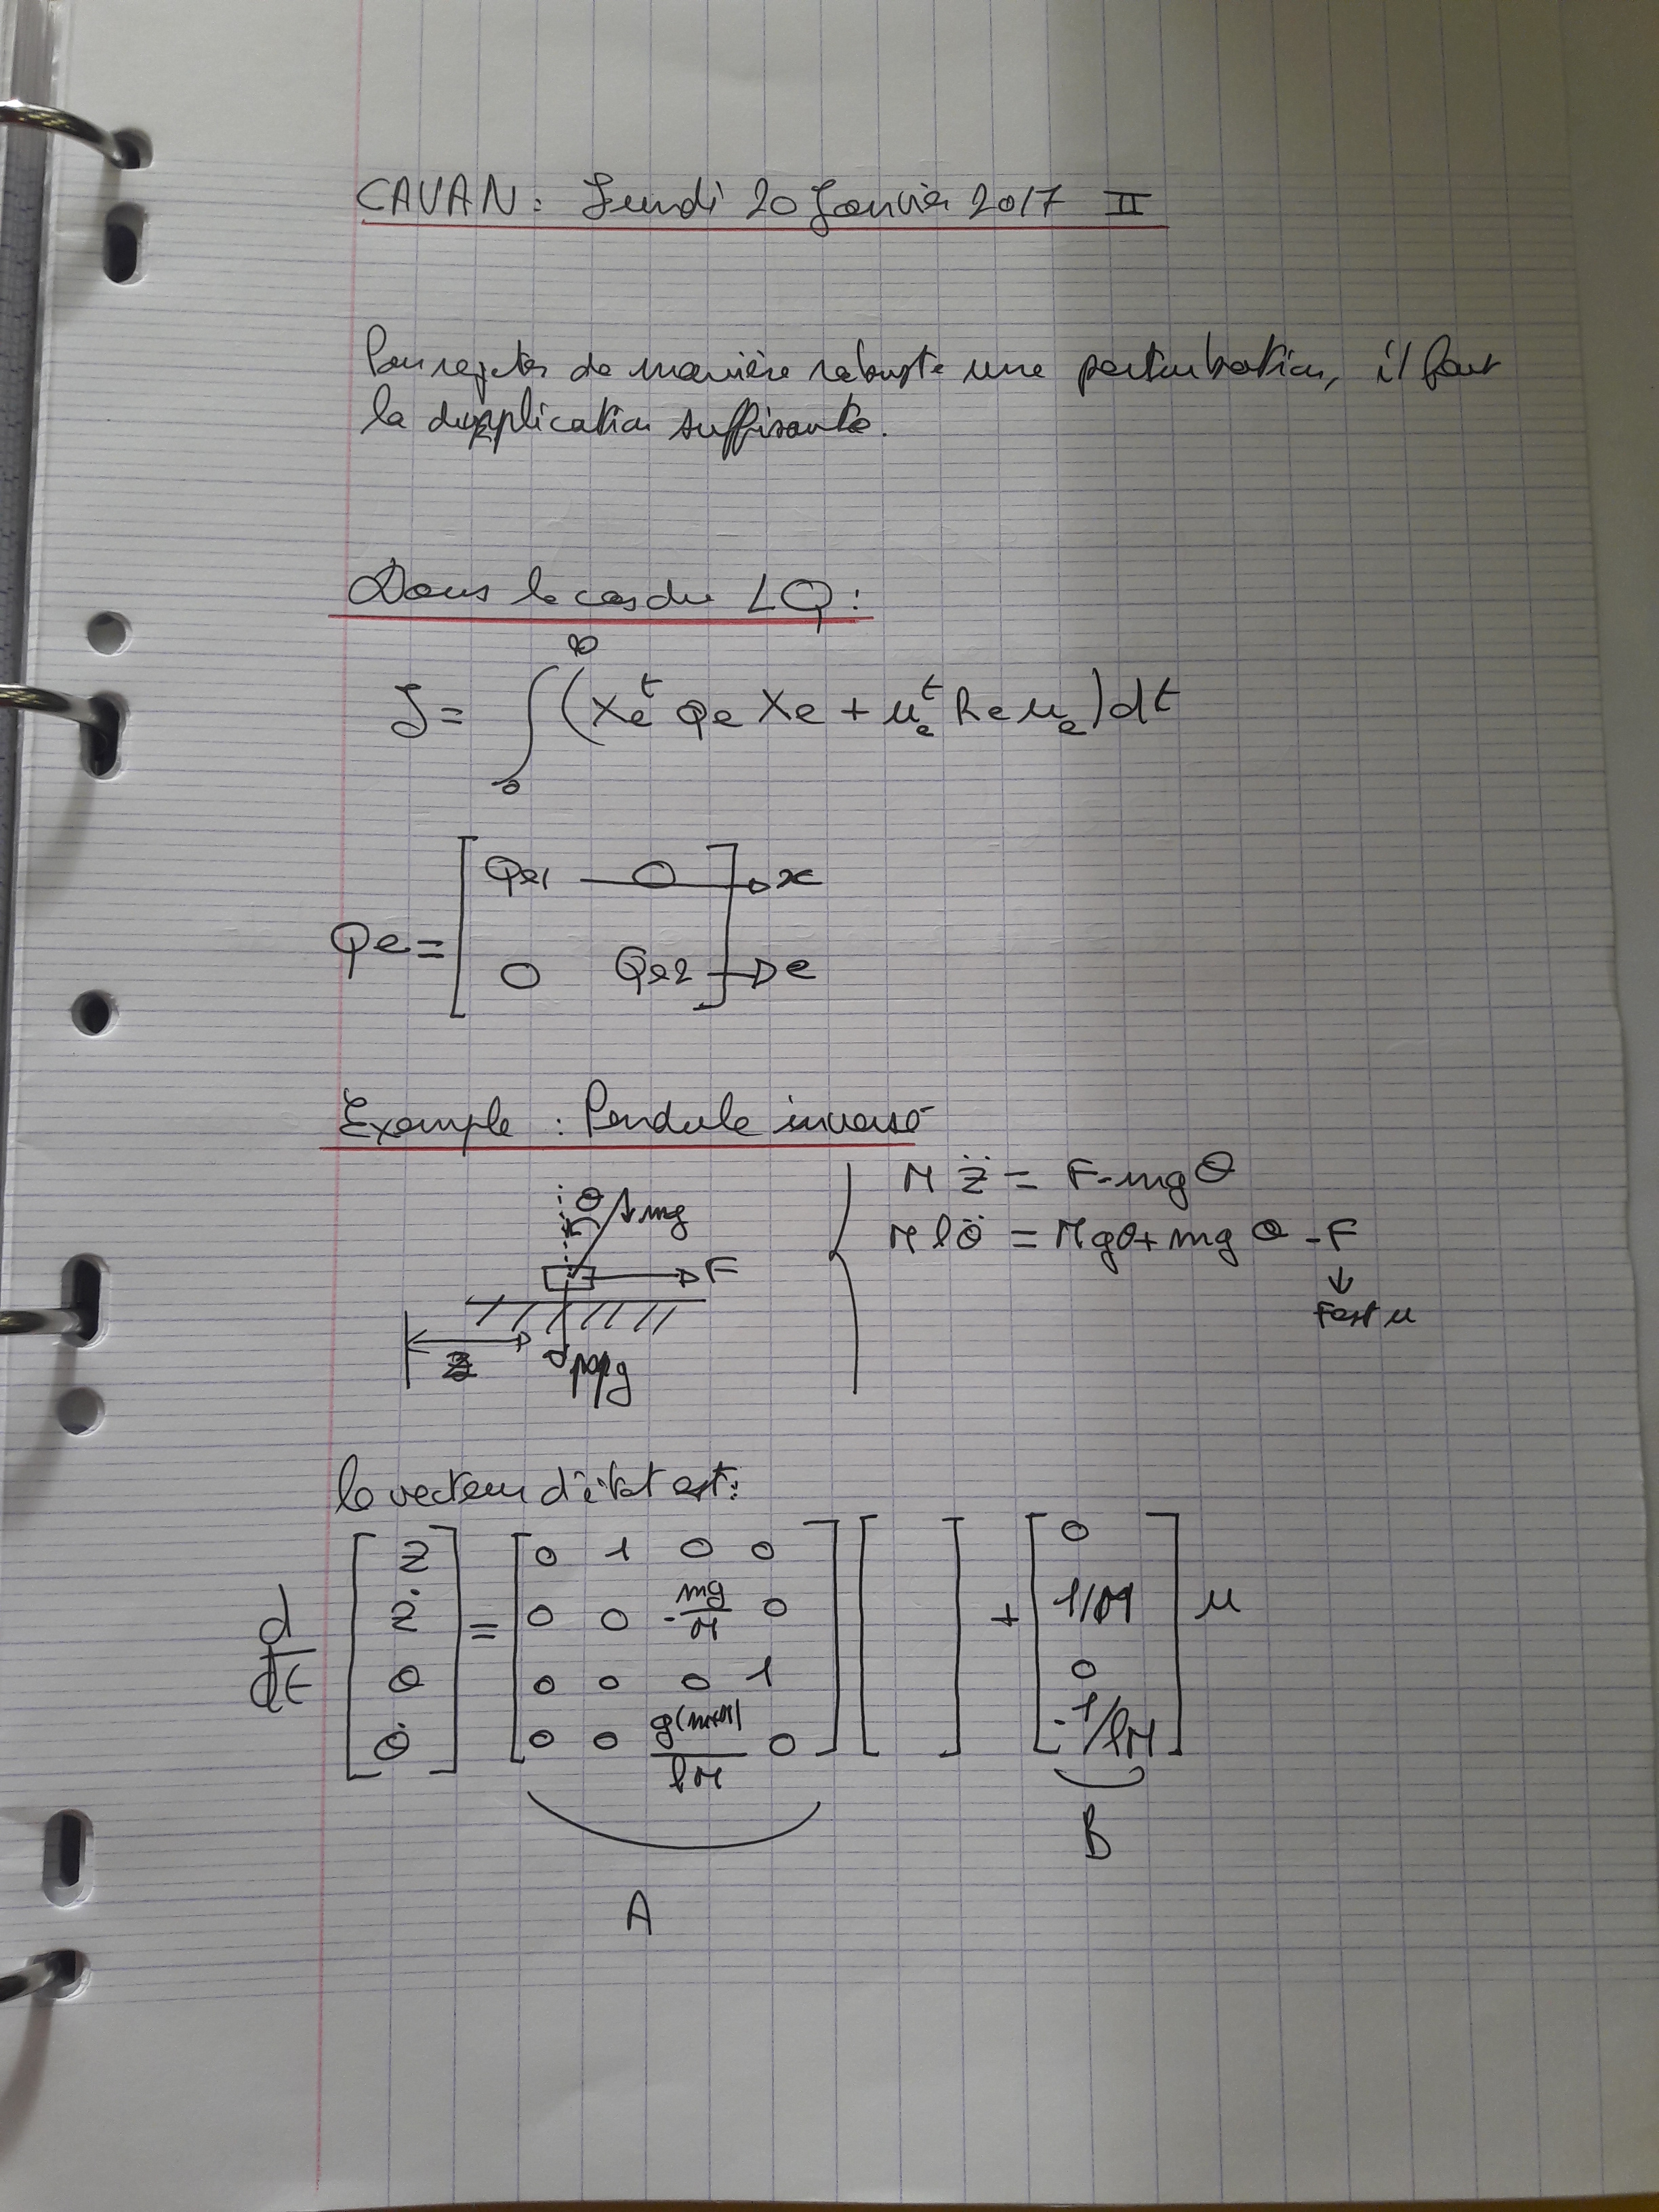 CAVAN : Lundi 20 Janvier 2017 II
Pour rejeter de manière robuste une perturbation, il faut
la dupplication suffisante.
Dans le cas du LQ :
J = ∫₀^∞ (Xe^t Qe Xe + u_e^t Re u_e) dt
Qe = [ Qe1 0 ] → x
[ 0 Qe2 ] → e
Exemple : Pendule inversé
θ mg
F
z
Mg
M z̈ = F - mgθ
M l θ̈ = Mgθ + mgθ - F
↓
F est u
le vecteur d'état est :
d/dt [ z ] = [ 0 1 0 0 ] [ ] + [ 0 ] u
[ ż ] [ 0 0 -mg/M 0 ] [ 1/M ]
[ θ ] [ 0 0 0 1 ] [ 0 ]
[ θ̇ ] [ 0 0 g(m+M)/lM 0 ] [ -1/lM ]
A
B